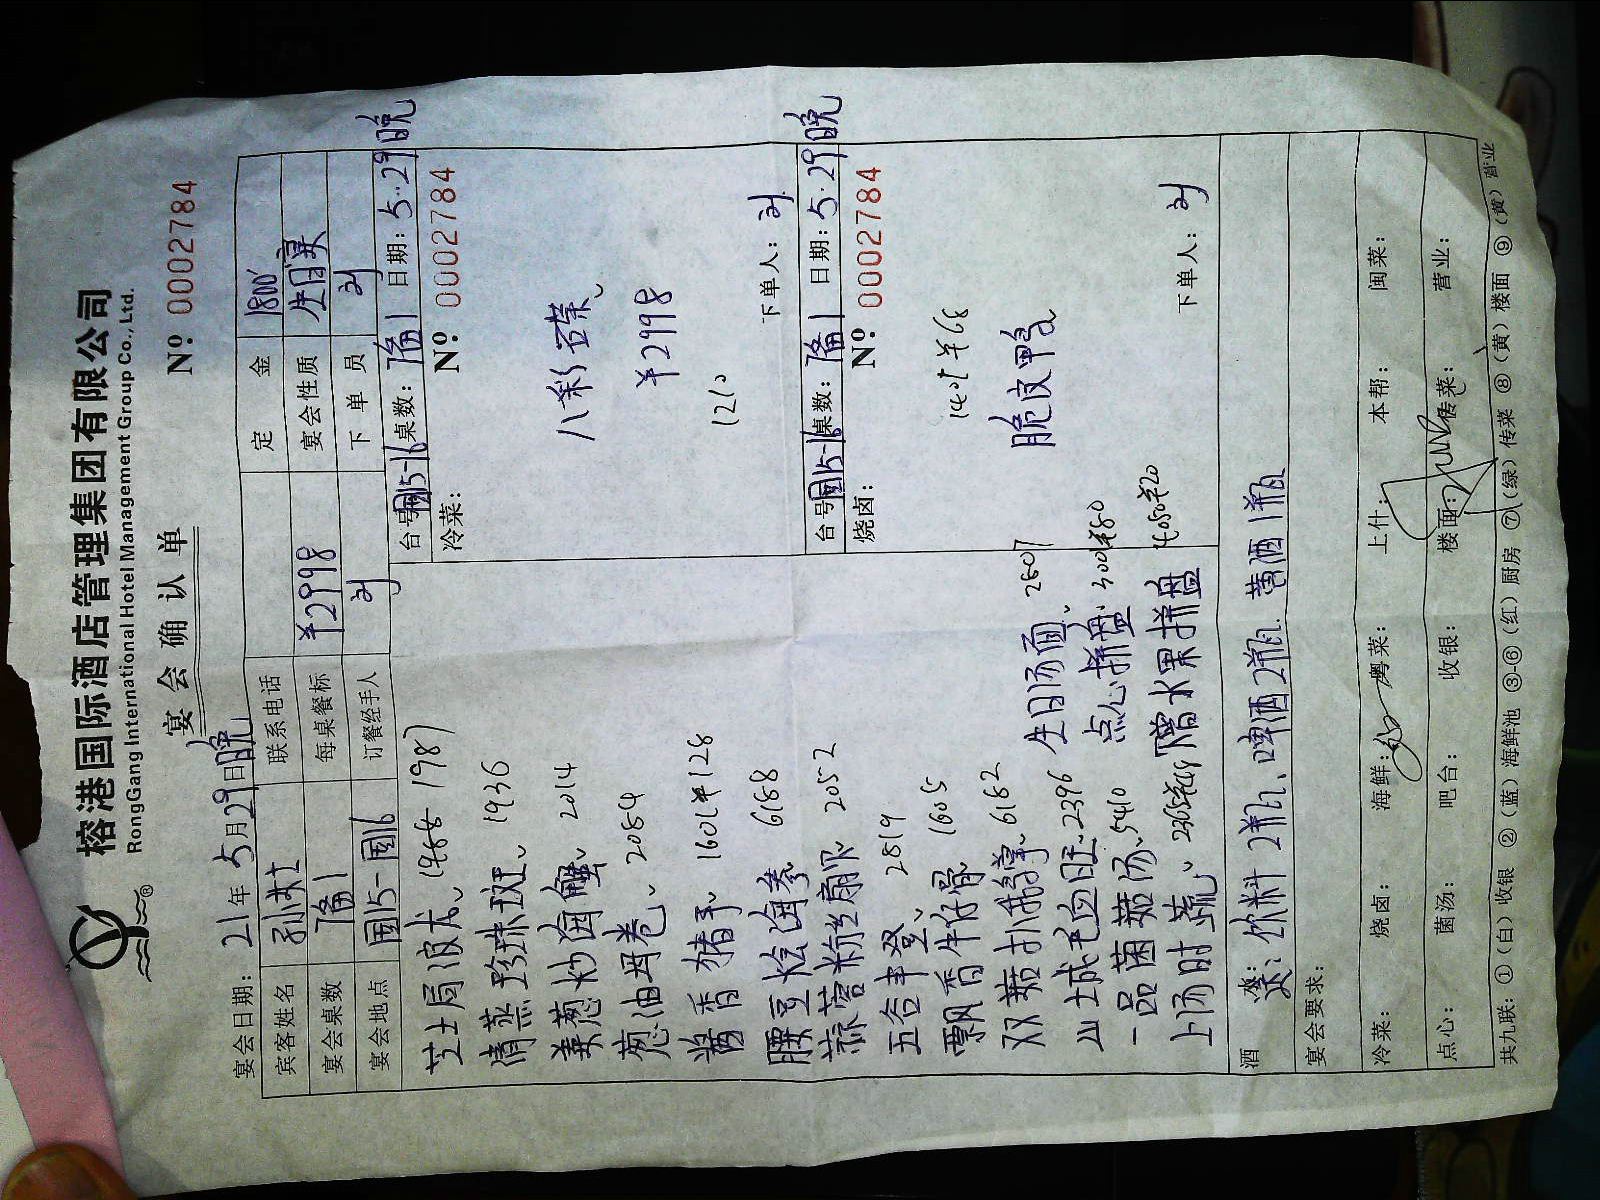 榕港国际酒店管理集团有限公司
RongGang International Hotel Management Group Co., Ltd.
宴会确认单
№ 0002784
宴会日期: 21年5月29日晚
宾客姓名 孙 联系电话 定金 1800
宴会桌数 7备1 每桌餐标 ¥2998 宴会性质 生日宴
宴会地点 国15-国16 订餐经手人 刘 下单员 刘
芝士局波龙、 1987
清蒸珍珠斑、 1936
姜葱炒海蟹 2014
葱油母卷、 2084
酱香猪手、 1601 ¥128
腰豆烩海参 6188
蒜蓉粉丝扇贝 2052
五谷丰登、 2819
飘香牛仔骨、 1605
双菇扒佛掌、 6182
山城毛血旺、 2396
一品菌菇汤、 5410
上汤时蔬、
生日汤面、 2807
点心拼盘、 3001 ¥80
赠水果拼盘 4050 ¥20
台号 国15-16 桌数: 7备1 日期: 5.29晚
冷菜: № 0002784
八彩碟、
¥2998
1210
下单人: 刘
台号 国15-16 桌数: 7备1 日期: 5.29晚
烧卤: № 0002784
¥68
脆皮鸭
下单人: 刘
酒水: 送: 饮料2瓶、啤酒2瓶、黄酒1瓶
宴会要求:
冷菜: 烧卤: 海鲜: 粤菜: 上什: 本帮: 闽菜:
点心: 菌汤: 吧台: 收银: 楼面: 传菜: 营业:
共九联: ①(白)收银 ②(蓝)海鲜池 ③-⑥(红)厨房 ⑦(绿)传菜 ⑧(黄)楼面 ⑨(黄)营业